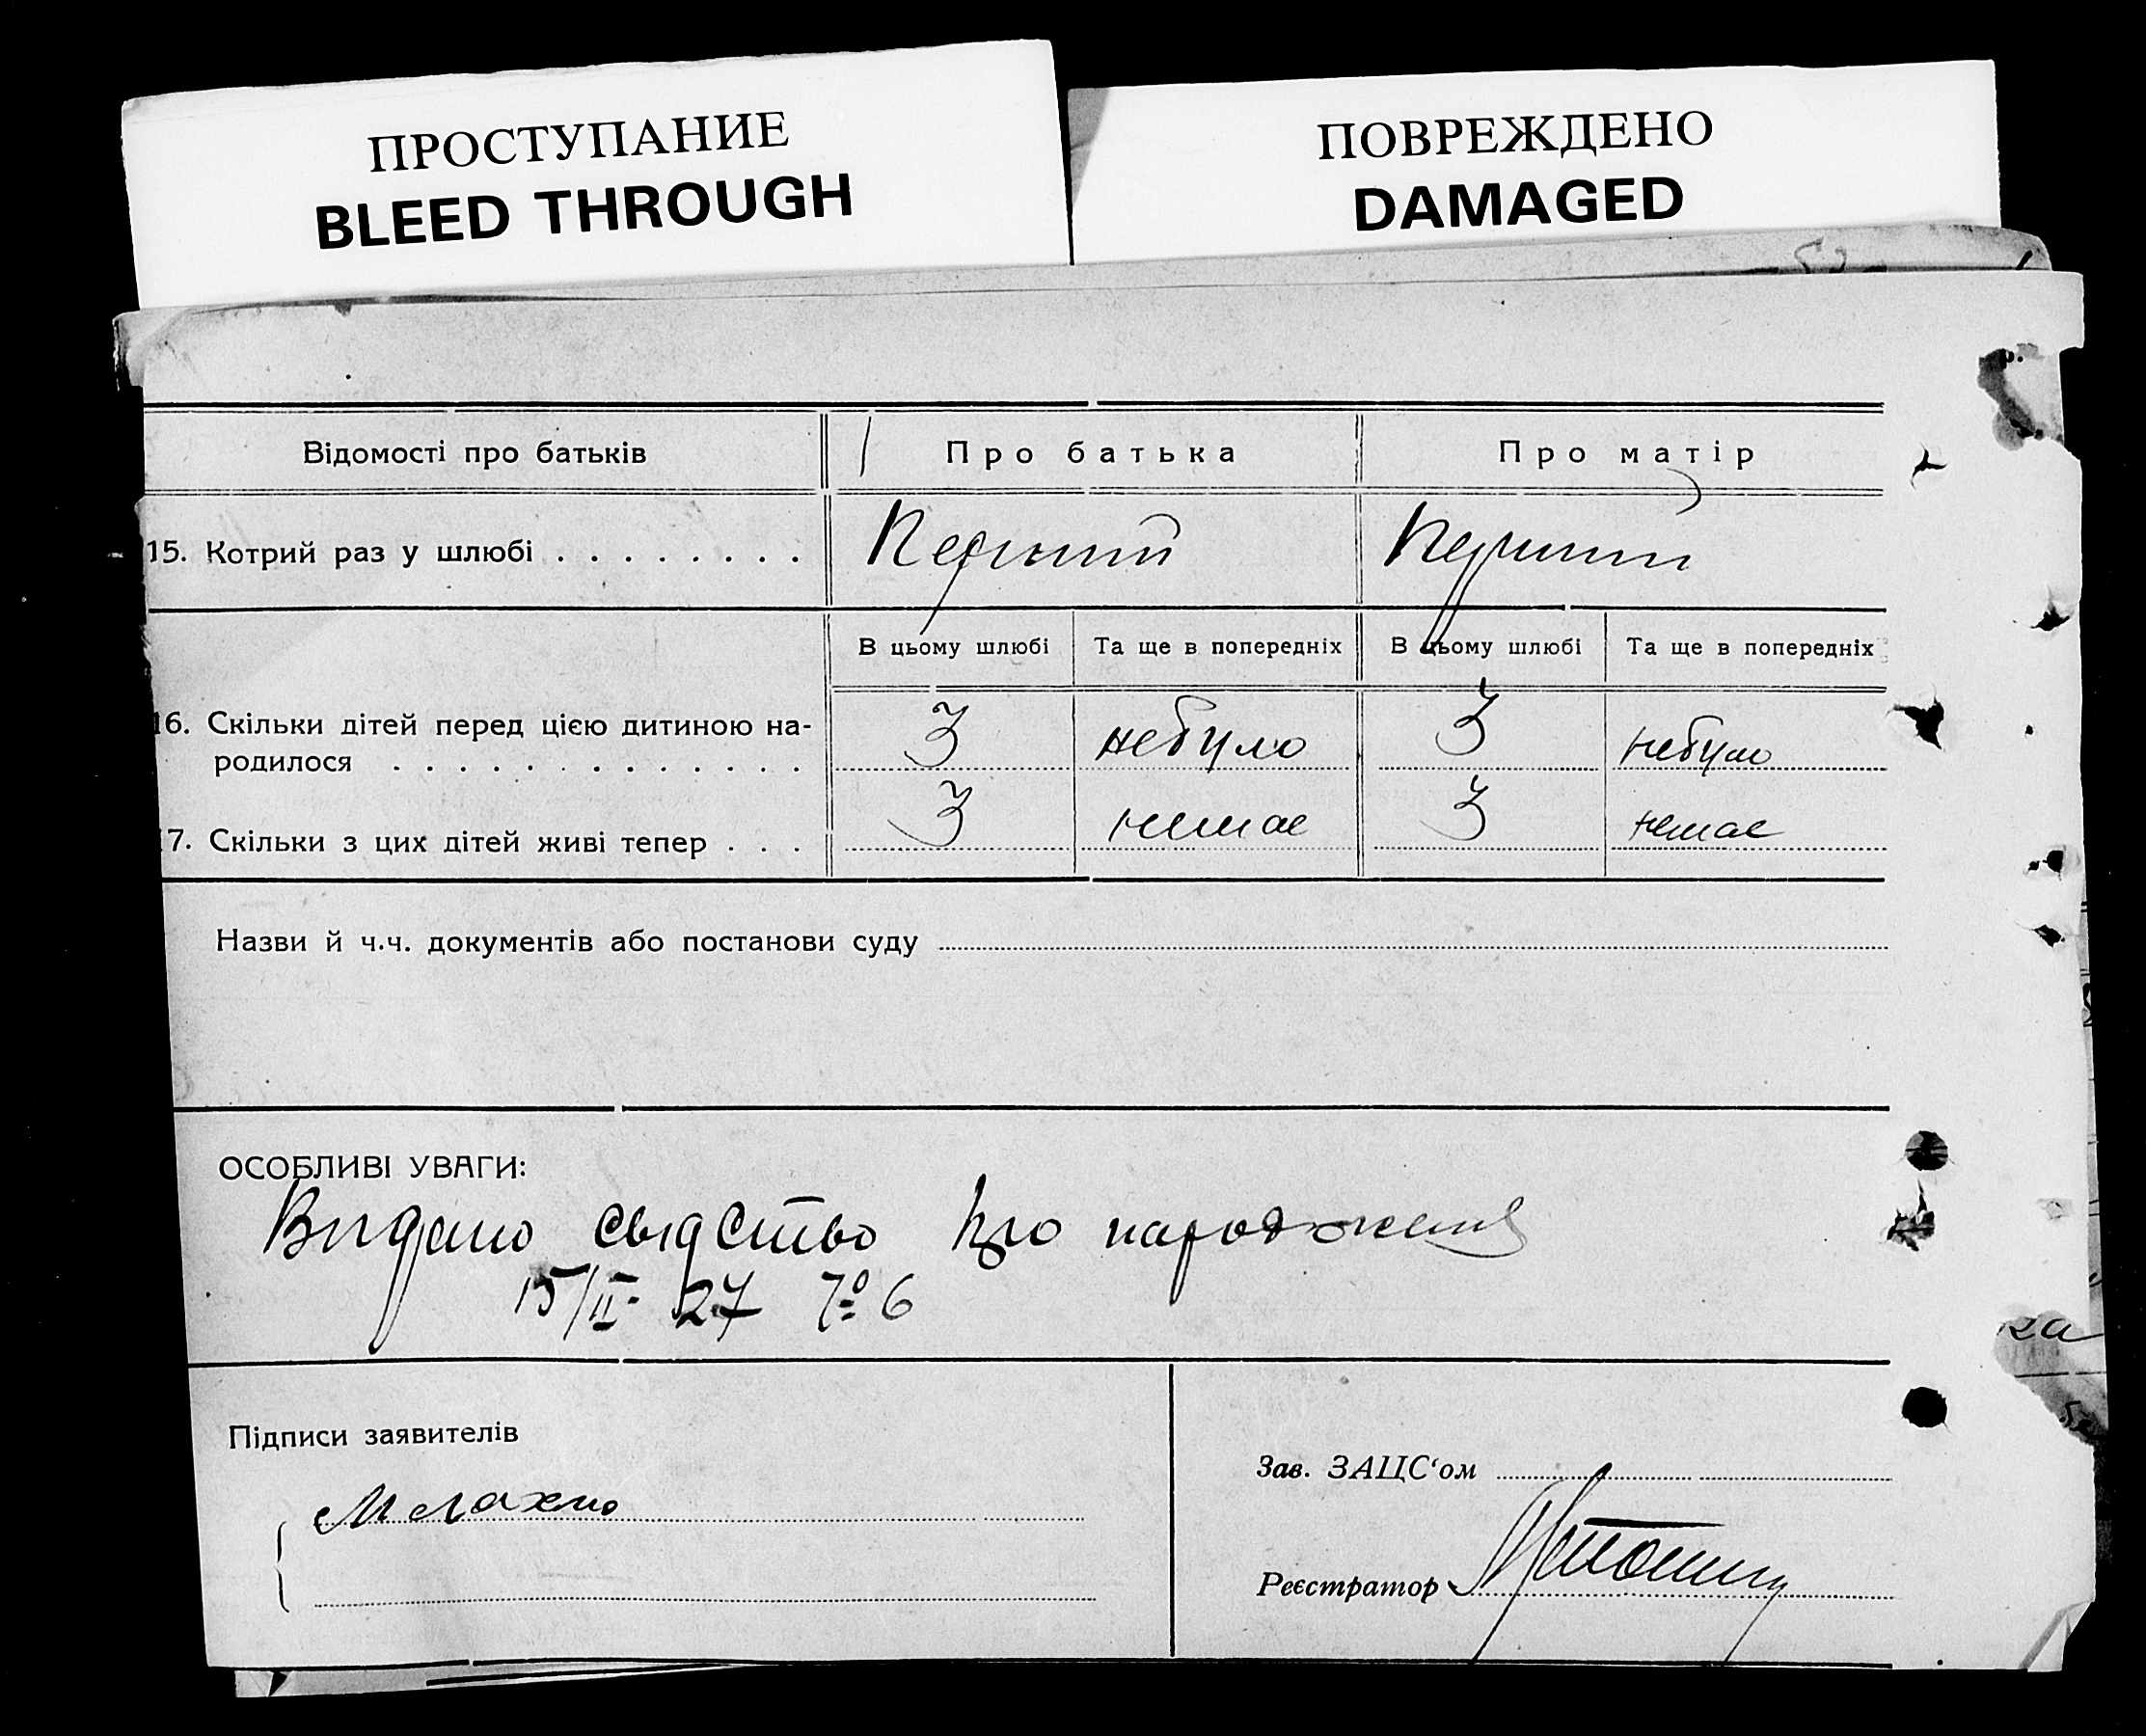 ПРОСТУПАНИЕ
BLEED THROUGH
ПОВРЕЖДЕНО
DAMAGED
Відомості про батьків
Про батька
Про матір
15. Котрий раз у шлюбі
Перший
Перший
В цьому шлюбі
Та ще в попередніх
В цьому шлюбі
Та ще в попередніх
16. Скільки дітей перед цією дитиною на-
родилося
3
небуло
3
небуло
17. Скільки з цих дітей живі тепер
3
немає
3
немає
Назви й ч.ч. документів або постанови суду
ОСОБЛИВІ УВАГИ:
Видано свідство про народження
15/II- 27 № 6
Підписи заявителів
Зав. ЗАЦС‘ом
Реєстратор